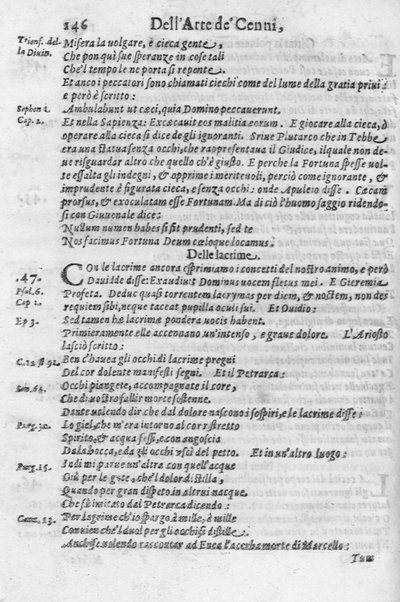 146 Dell'Arte de' Cenni,
Trionf. del- Misera la volgare, e cieca gente,
la Diuin. Che pon quì sue speranze in cose tali
Che'l tempo le ne porta sì repente.
Et anco i peccatori sono chiamati ciechi come del lume della gratia priui:
e però è scritto:
Sophon 2. Ambulabunt ut cæci, quia Domino peccauerunt.
Cap. 2. Et nella Sapienza: Excæcauit eos malitia eorum. E giocare alla cieca, ò
operare alla cieca si dice de gli ignoranti. Scriue Plutarco che in Tebbe
era una statua senza occhi, che rappresentaua il Giudice, il quale non de-
ue risguardar altro che quello ch'è giusto. E perche la Fortuna spesse vol-
te essalta gli indegni, & opprime i meriteuoli, perciò come ignorante, &
imprudente è figurata cieca, e senza occhi: onde Apuleio disse. Cæcam
prorsus, & exoculatam esse Fortunam. Ma di ciò l'huomo saggio ridendo-
si con Giuuenale dice:
Nullum numen habes si sit prudenti, sed te
Nos facimus Fortuna Deum cæloque locamus.
Delle lacrime.
.47. COn le lacrime ancora esprimiamo i concetti del nostro animo, e però
Psal. 6. Dauidde disse: Exaudiuit Dominus uocem fletus mei. E Gieremia
Cap 2. Profeta. Deduc quasi torrentem lacrymas per diem, & noctem, non des
requiem tibi, neque taceat pupilla oculi tui. Et Ouidio:
Ep 3. Sed tamen hæ lacrimæ pondera uocis habent.
Primieramente elle accennano un'intenso, e graue dolore. L'Ariosto
lasciò scritto:
C. 12 st 91. Ben c'hauea gli occhi di lacrime pregni
Del cor dolente manifesti segni. Et il Petrarca:
Son. 64. Occhi piangete, accompagnate il core,
Che di uostro fallir morte sostenne.
Dante uolendo dir che dal dolore nascono i sospiri, e le lacrime disse:
Purg. 30. Lo giel, che m'era intorno al cor ristretto
Spirito, & acqua fessi, e con angoscia
Da la bocca, e da gli occhi uscì del petto. Et in un'altro luogo:
Purg. 15. Io di mi parue un'altra con quell'acque
Giù per le gote, che'l dolor distilla,
Quando per gran dispeto in altrui nacque.
Che fù imitato dal Petrarca dicendo:
Canz. 23. Per lagrime ch'io spargo à mille, à mille
Conuien che'l duol per gli occhi si distille
Anchise uolendo raccontar ad Enea l'acerba morte di Marcello:
Tum